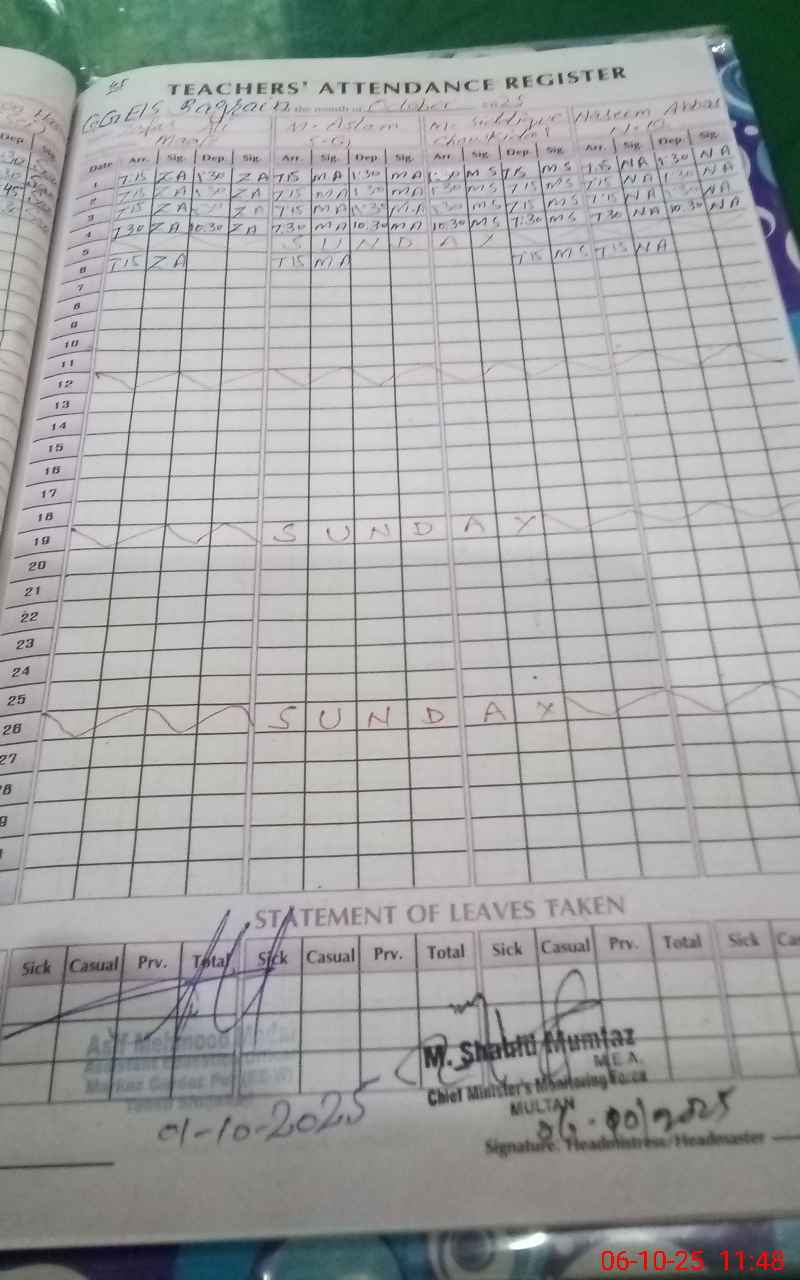 TEACHERS' ATTENDANCE REGISTER
GGES the month of October 2025
M. Aslam M. Siddique Naseem Abbas
Chowkidar
Date Arr. Sig. Dep. Sig. Arr. Sig. Dep. Sig. Arr. Sig. Dep. Sig. Arr. Sig. Dep. Sig.
1 7.15 ZA 1.30 ZA 7.15 MA 1.30 MA 1.30 MS 7.15 MS 7.15 NA 1.30 NA
2 7.15 ZA 1.30 ZA 7.15 MA 1.30 MA 1.30 MS 7.15 MS 7.15 NA 1.30 NA
3 7.15 ZA ZA 7.15 MA 1.30 MA 1.30 MS 7.15 MS 7.15 NA NA
4 7.30 ZA 10.30 ZA 7.30 MA 10.30 MA 10.30 MS 7.30 MS 7.30 NA 10.30 NA
5 SUNDAY
6 7.15 ZA 7.15 MA 7.15 MS 7.15 NA
7
8
9
10
11
12
13
14
15
16
17
18
19 SUNDAY
20
21
22
23
24
25
26 SUNDAY
27
8
9
STATEMENT OF LEAVES TAKEN
Sick Casual Prv. Total Sick Casual Prv. Total Sick Casual Prv. Total Sick Cas
Asif Mehmood
M. Shahid Mumtaz
M.E.A.
Chief Minister's Monitoring Force
MULTAN
01-10-2025
Signature. Headmistress/Headmaster
06-10-25 11:48